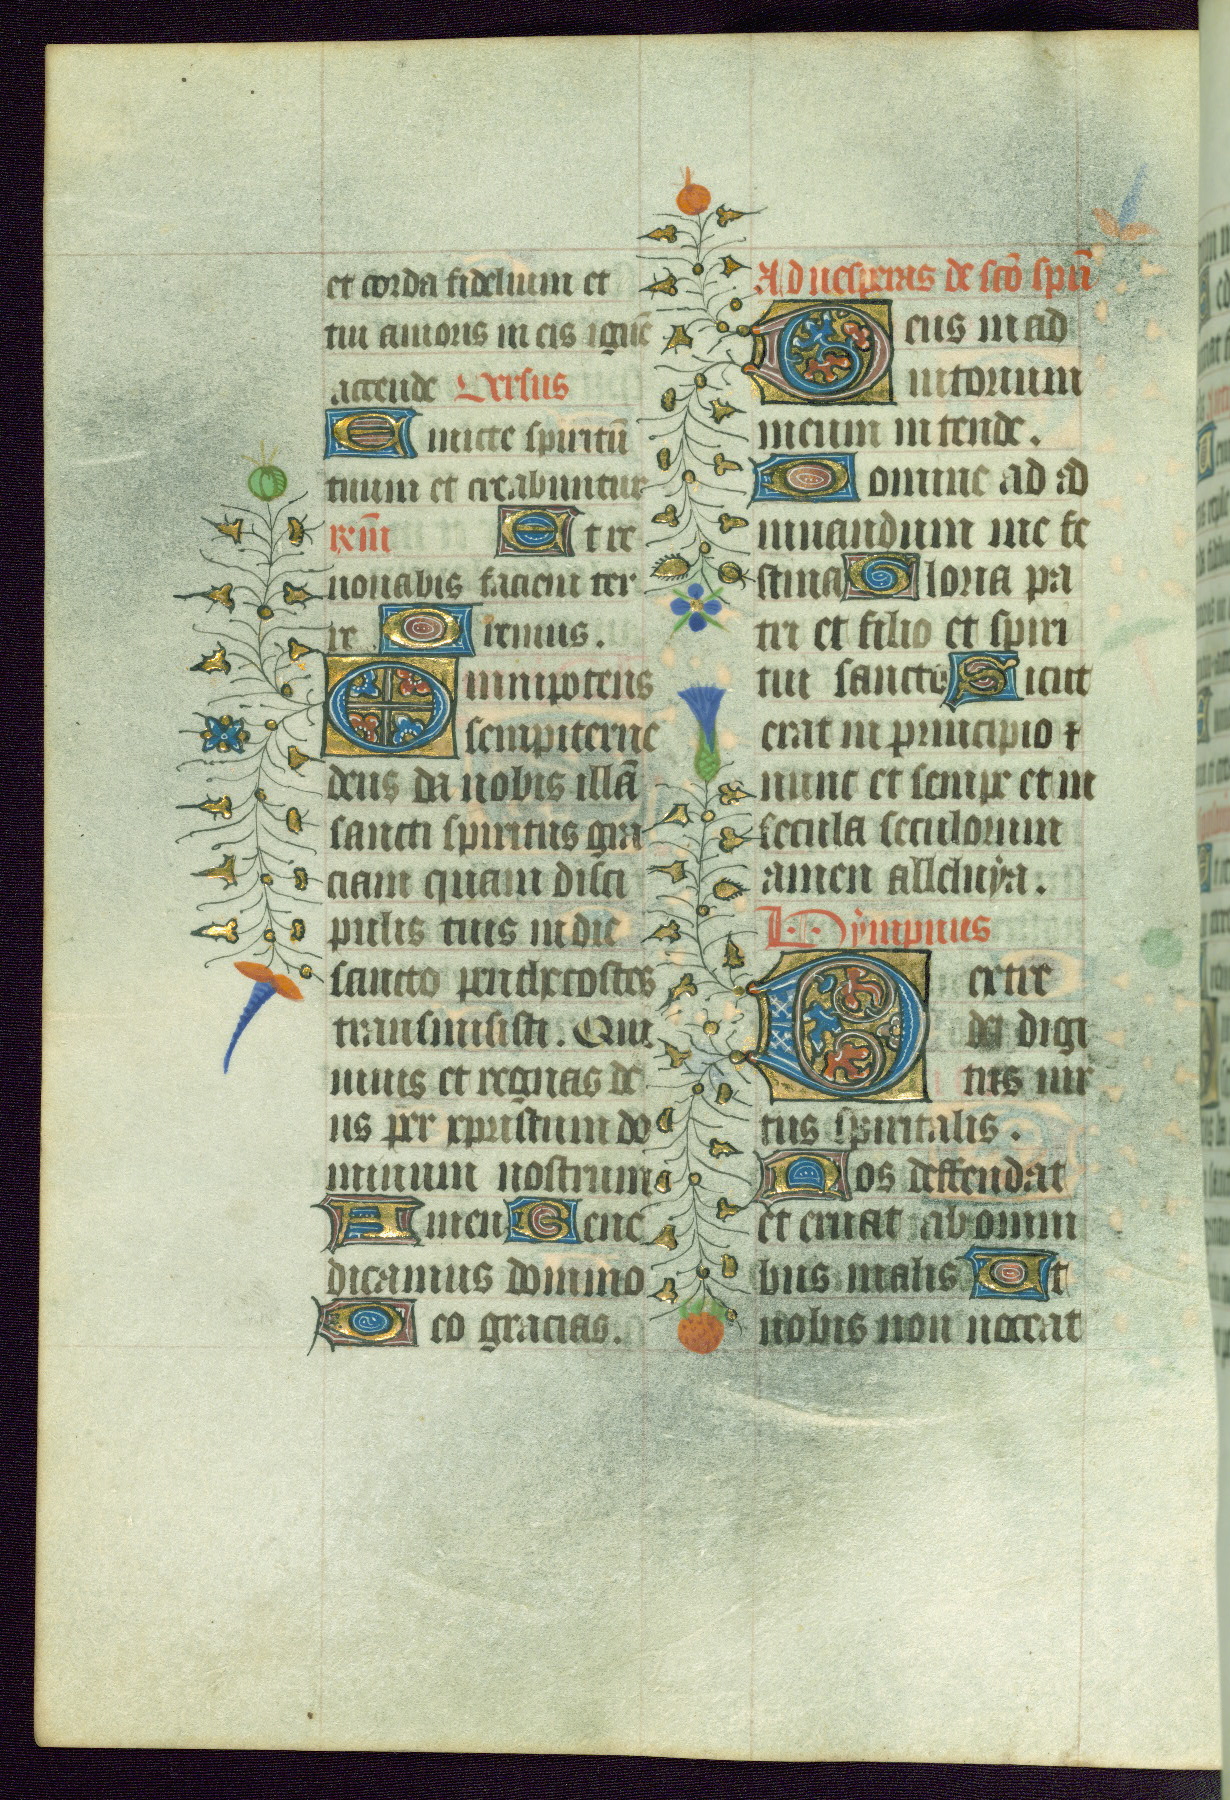 et corda fidelium et
tui amoris in eis ignē
accende Versus
Emitte spiritū
tuum et creabuntur
rem̄ Et re
nouabis faciem ter
re. Oremus.
Omnipotens
sempiterne
deus da nobis illā
sancti spiritus gra
ciam quam disci
pulis tuis in die
sancto penthecostes
transmisisti. Qui
uiuis et regnas de
us per xpristum do
minum nostrum
Amen Bene
dicamus domino
Deo gracias.
Ad uesperas de scō spū
Deus in ad
iutorium
meum intende.
Domine ad ad
iuuandum me fe
stina Gloria pa
tri et filio et spiri
tui sancto Sicut
erat in principio ⁊
nunc et semper et in
secula seculorum
amen alleluya.
Hympnus
Dextre
dei digi
tus uir
tus spiritalis.
Nos deffendat
et eruat ab omni
bus malis Ut
nobis non noceat